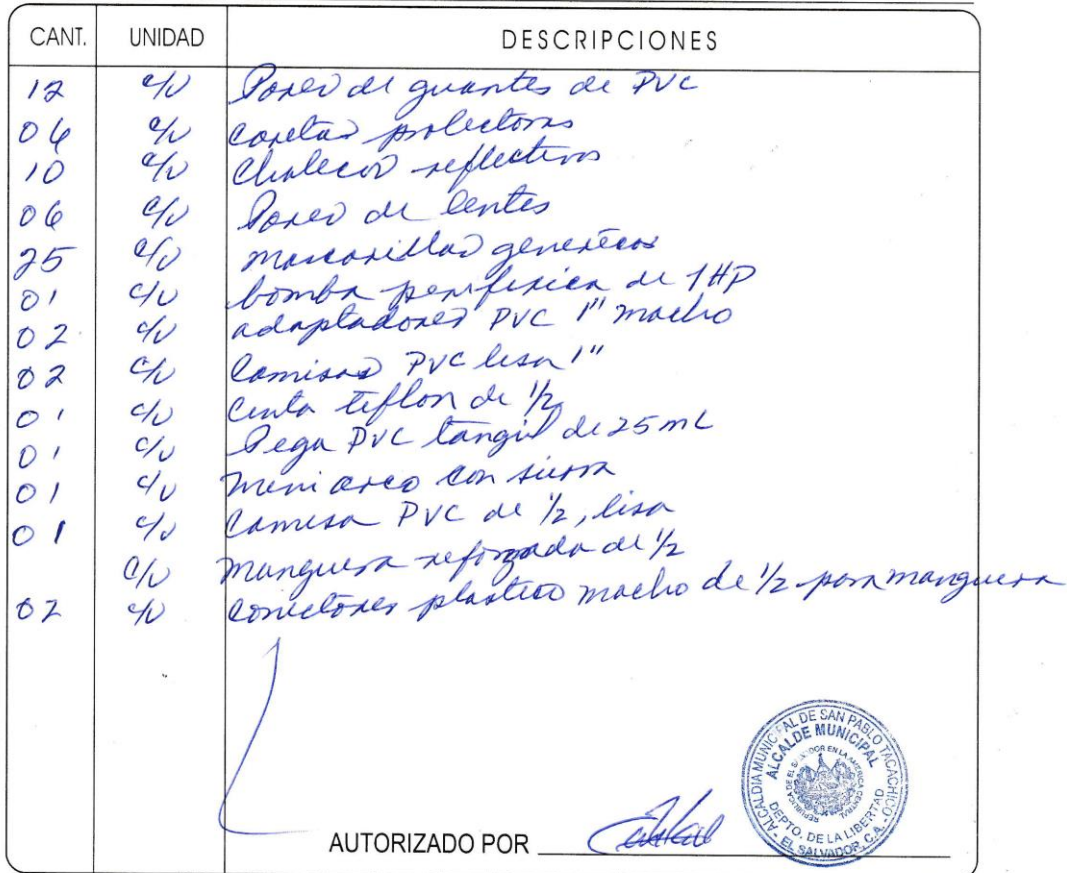 CANT. UNIDAD DESCRIPCIONES
12 c/u Pares de guantes de PVC
06 c/u caretas protectoras
10 c/u Chalecos reflectivos
06 c/u Pares de lentes
25 c/u mascarillas genericas
01 c/u bomba periferica de 1HP
02 c/u adaptadores PVC 1" macho
02 c/u Camisas PVC lisa 1"
01 c/u Cinta teflon de 1/2
01 c/u Pega PVC tangit de 25 mL
01 c/u mini arco con sierra
01 c/u Camisa PVC de 1/2, lisa
c/u manguera reforzada de 1/2
02 c/u conectores plastico macho de 1/2 para manguera
AUTORIZADO POR
ALCALDIA MUNICIPAL DE SAN PABLO TACACHICO
ALCALDE MUNICIPAL
REPUBLICA DE EL SALVADOR EN LA AMERICA CENTRAL
DEPTO. DE LA LIBERTAD
EL SALVADOR, C.A.